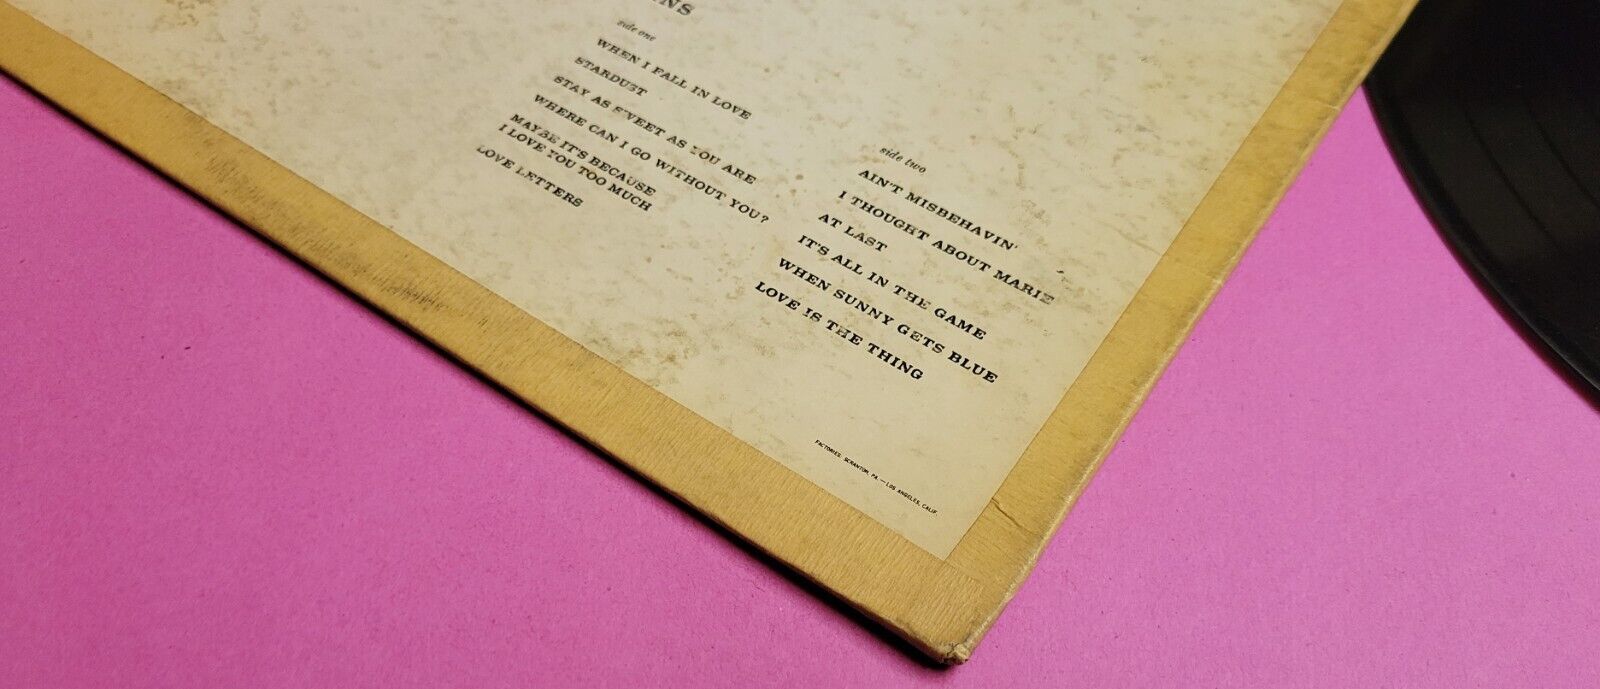 NS
side one
WHEN I FALL IN LOVE
STARDUST
STAY AS SWEET AS YOU ARE
WHERE CAN I GO WITHOUT YOU?
MAYBE IT'S BECAUSE
I LOVE YOU TOO MUCH
LOVE LETTERS
side two
AIN'T MISBEHAVIN'
I THOUGHT ABOUT MARIE
AT LAST
IT'S ALL IN THE GAME
WHEN SUNNY GETS BLUE
LOVE IS THE THING
FACTORIES: SCRANTON, PA.—LOS ANGELES, CALIF.